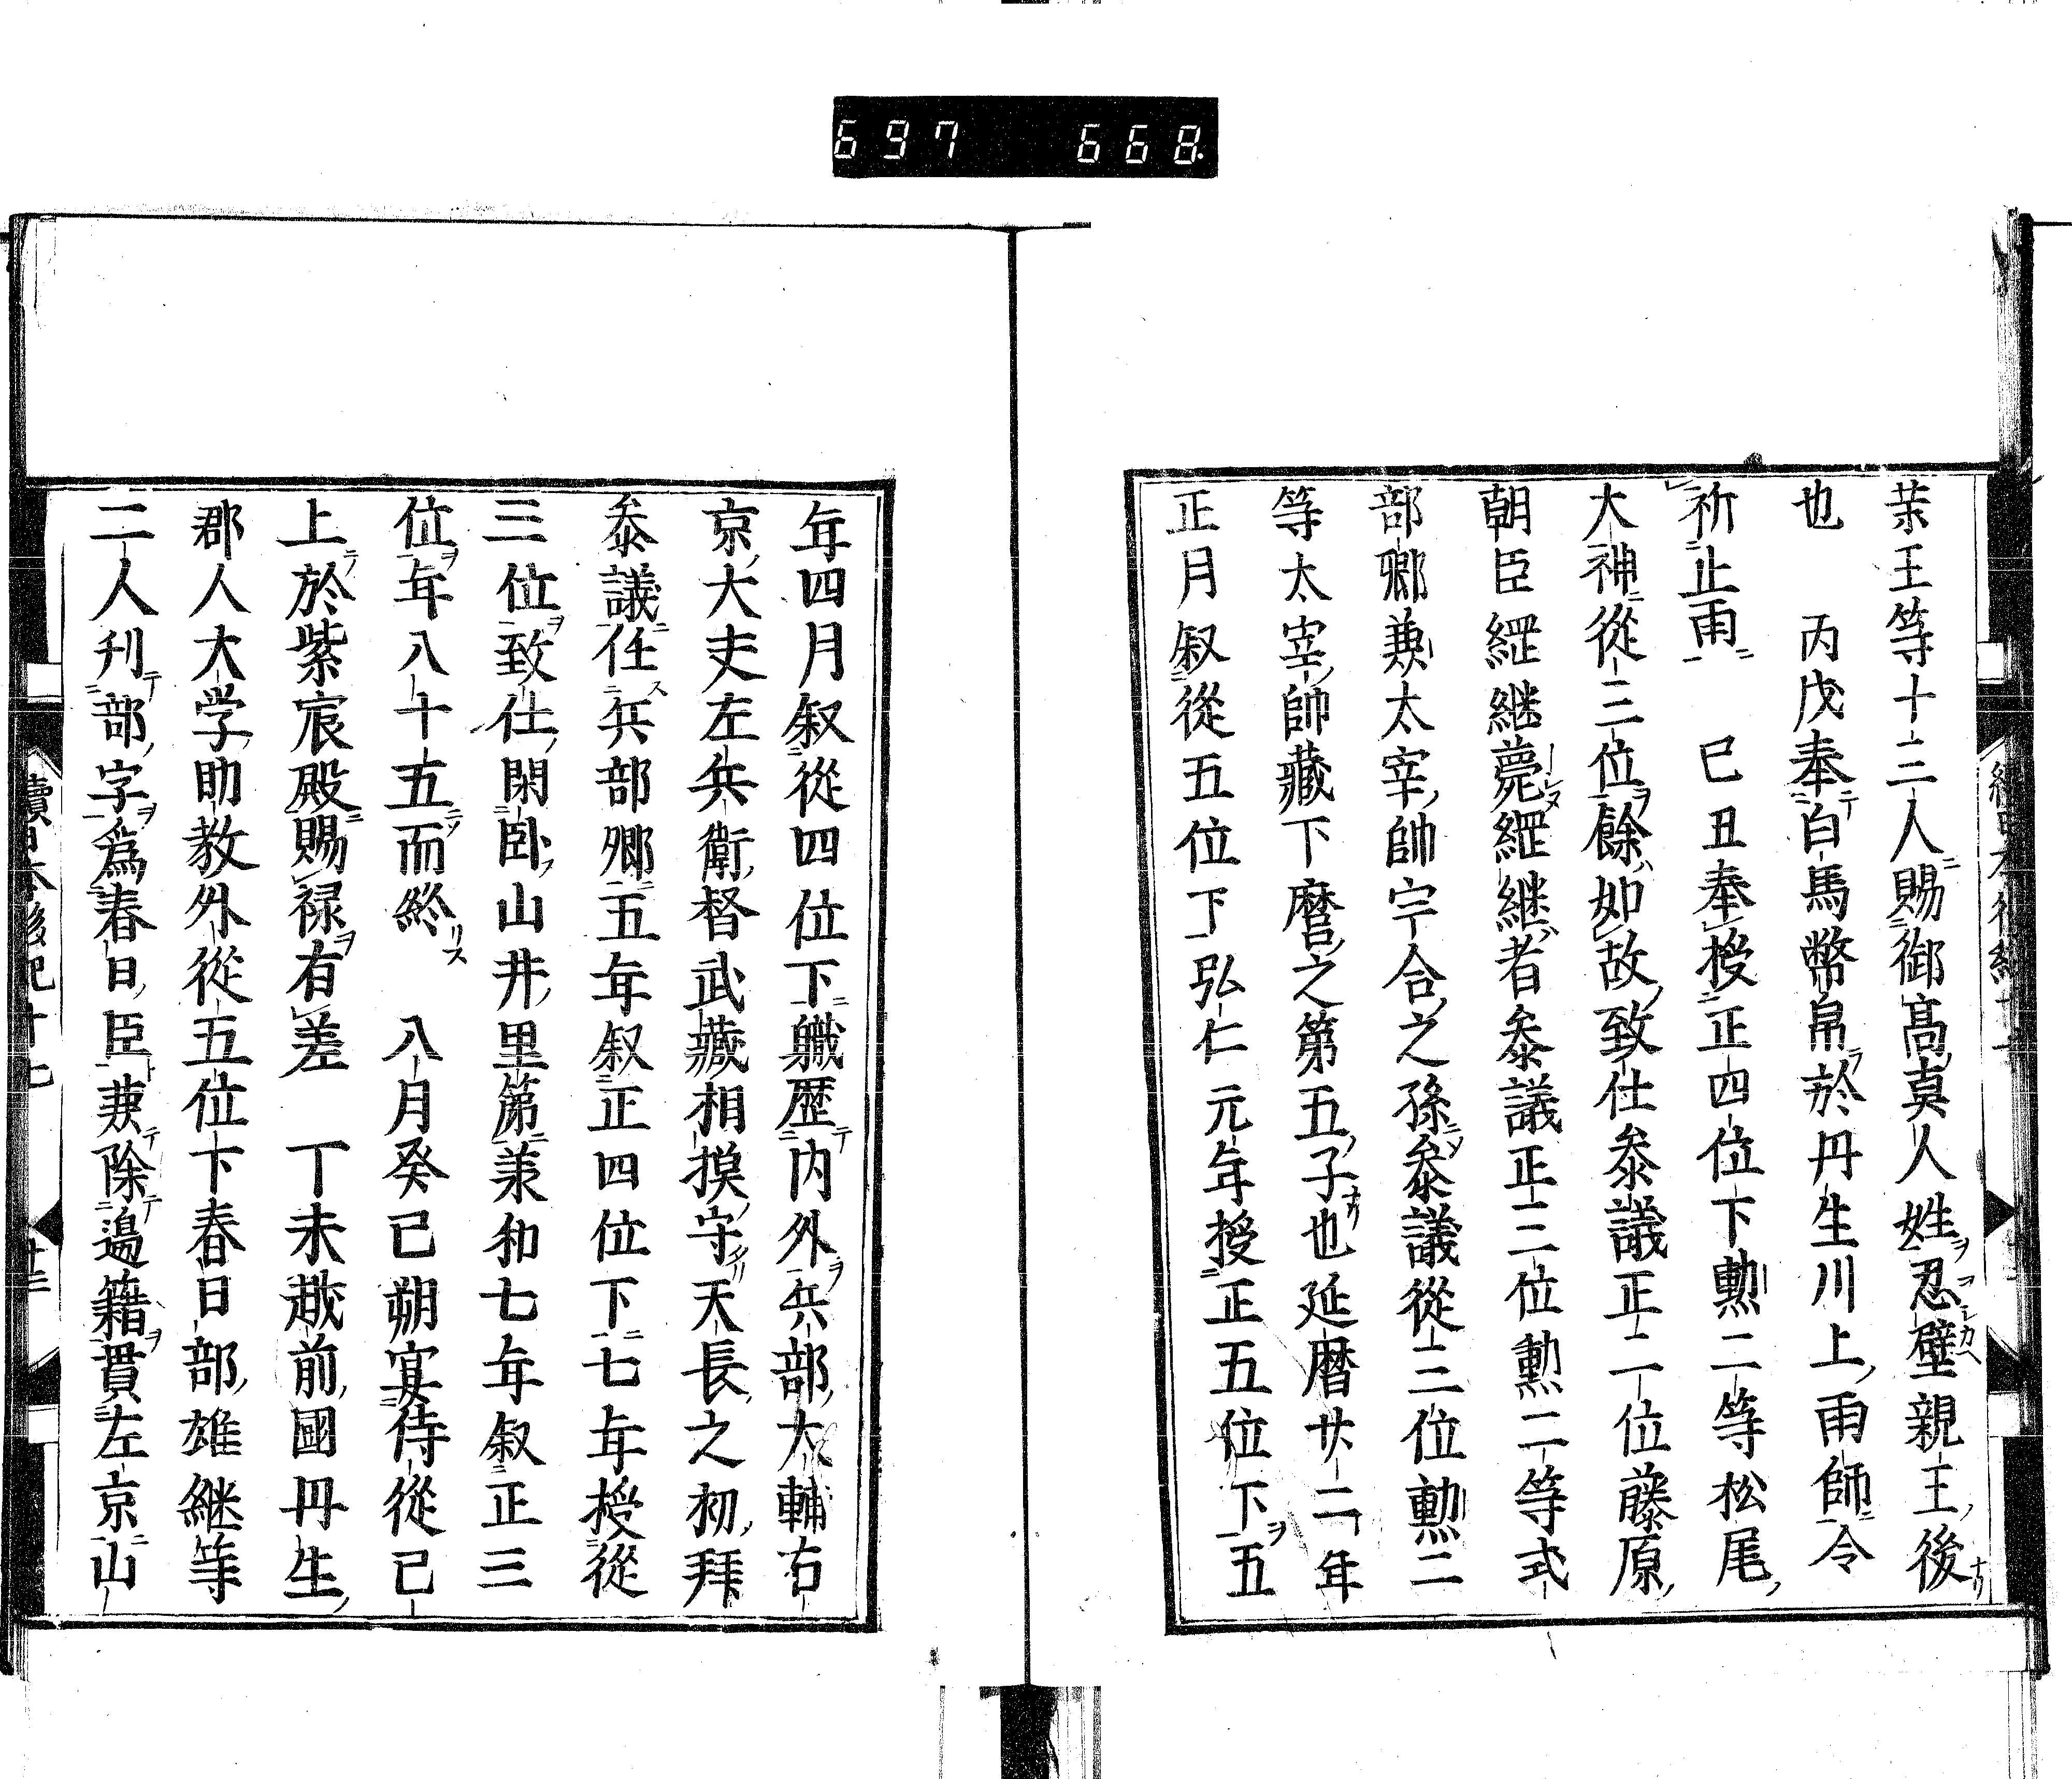 697 668
茉王等十三人賜御高真人姓忍壁親王後
也 丙戌奉白馬幣帛於丹生川上雨師令
祈止雨 己丑奉授正四位下勲二等松尾
大神從三位餘如故致仕叅議正二位藤原
朝臣繦継薨繦継者叅議正三位勲二等式
部卿兼太宰帥宇合之孫叅議從三位勲二
等太宰帥藏下麿之第五子也延暦廿二年
正月叙從五位下弘仁元年授正五位下五
年四月叙從四位下軄歴内外兵部大輔右
京大夫左兵衛督武藏相摸守天長之初拜
叅議任兵部卿五年叙正四位下七年授從
三位致仕閑臥山井里第羕和七年叙正三
位年八十五而終 八月癸已朔宴侍從已
上於紫宸殿賜禄有差 丁未越前國丹生
郡人大学助教外從五位下春日部雄継等
二人刋部字爲春日臣兼除邊籍貫左京山
續日本後紀十七 廿三